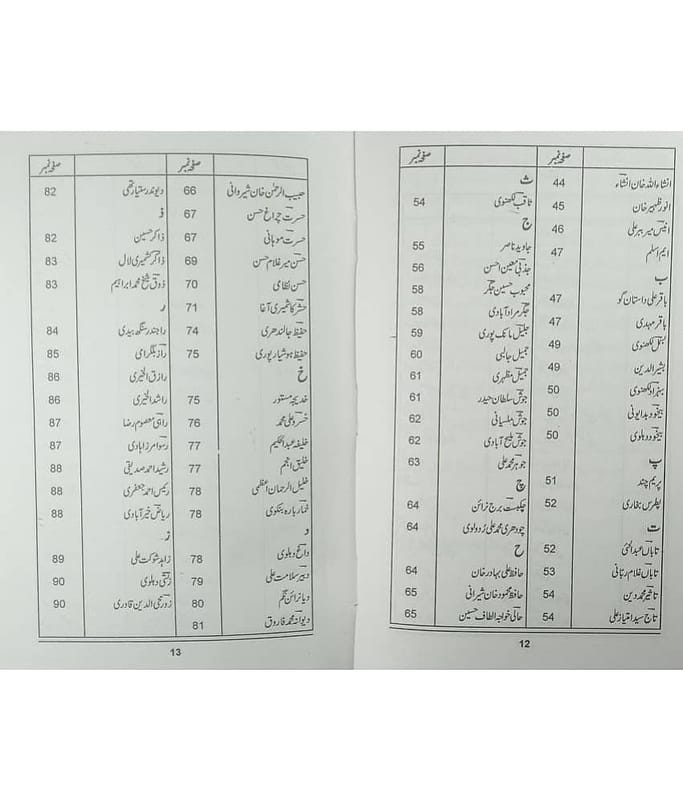 صفحہ نمبر
انشاء اللہ خان انشاء 44
انور ظہیر خان 45
انیس میر ببر علی 46
ایم اسلم 47
ب
باقر علی داستان گو 47
باقر مہدی 47
بسمل لکھنوی 49
بشیر الدین 49
بہزاد لکھنوی 50
بیخود بدایونی 50
بیخود دہلوی 50
پ
پریم چند 51
پطرس بخاری 52
ت
تاباں عبدالحئی 52
تاباں غلام ربانی 53
تاثیر محمد دین 54
تاج سید امتیاز علی 54
صفحہ نمبر
ث
ثاقب لکھنوی 54
ج
جاوید ناصر 55
جذبی معین احسن 56
محبوب حسین جگر 58
جگر مراد آبادی 58
جلیل مانک پوری 59
جمیل جالبی 60
جمیل مظہری 61
جوش سلطان حیدر 61
جوش ملسیانی 62
جوش ملیح آبادی 62
جوہر محمد علی 63
چ
چکبست برج نرائن 64
چودھری محمد علی رُدولوی 64
ح
حافظ علی بہادر خان 64
حافظ محمود خان شیرانی 65
حالی خواجہ الطاف حسین 65
12
صفحہ نمبر
حبیب الرحمٰن خان شیروانی 66
حسرت چراغ حسن 67
حسرت موہانی 67
حسن میر غلام حسن 69
حسن نظامی 70
حشر کاشمیری آغا 71
حفیظ جالندھری 74
حفیظ ہوشیارپوری 75
خ
خدیجہ مستور 75
خسرو علی محمد 76
خلیفہ عبدالحکیم 77
خلیق انجم 77
خلیل الرحمان اعظمی 78
خمار بارہ بنکوی 78
د
داغ دہلوی 78
دبیر سلامت علی 79
دیا نرائن نگم 80
دیوانہ محمد فاروق 81
صفحہ نمبر
دیوندر ستیارتھی 82
ذ
ذاکر حسین 82
ذاکر کشمیری لال 83
ذوق شیخ محمد ابراہیم 83
ر
راجندر سنگھ بیدی 84
راز بلگرامی 85
رازق الخیری 86
راشد الخیری 86
راہی معصوم رضا 87
رسوا مرزا ہادی 87
رشید احمد صدیقی 88
رئیس احمد جعفری 88
ریاض خیرآبادی 88
ز
زاہد شوکت علی 89
زٹشی دہلوی 90
زور محی الدین قادری 90
13